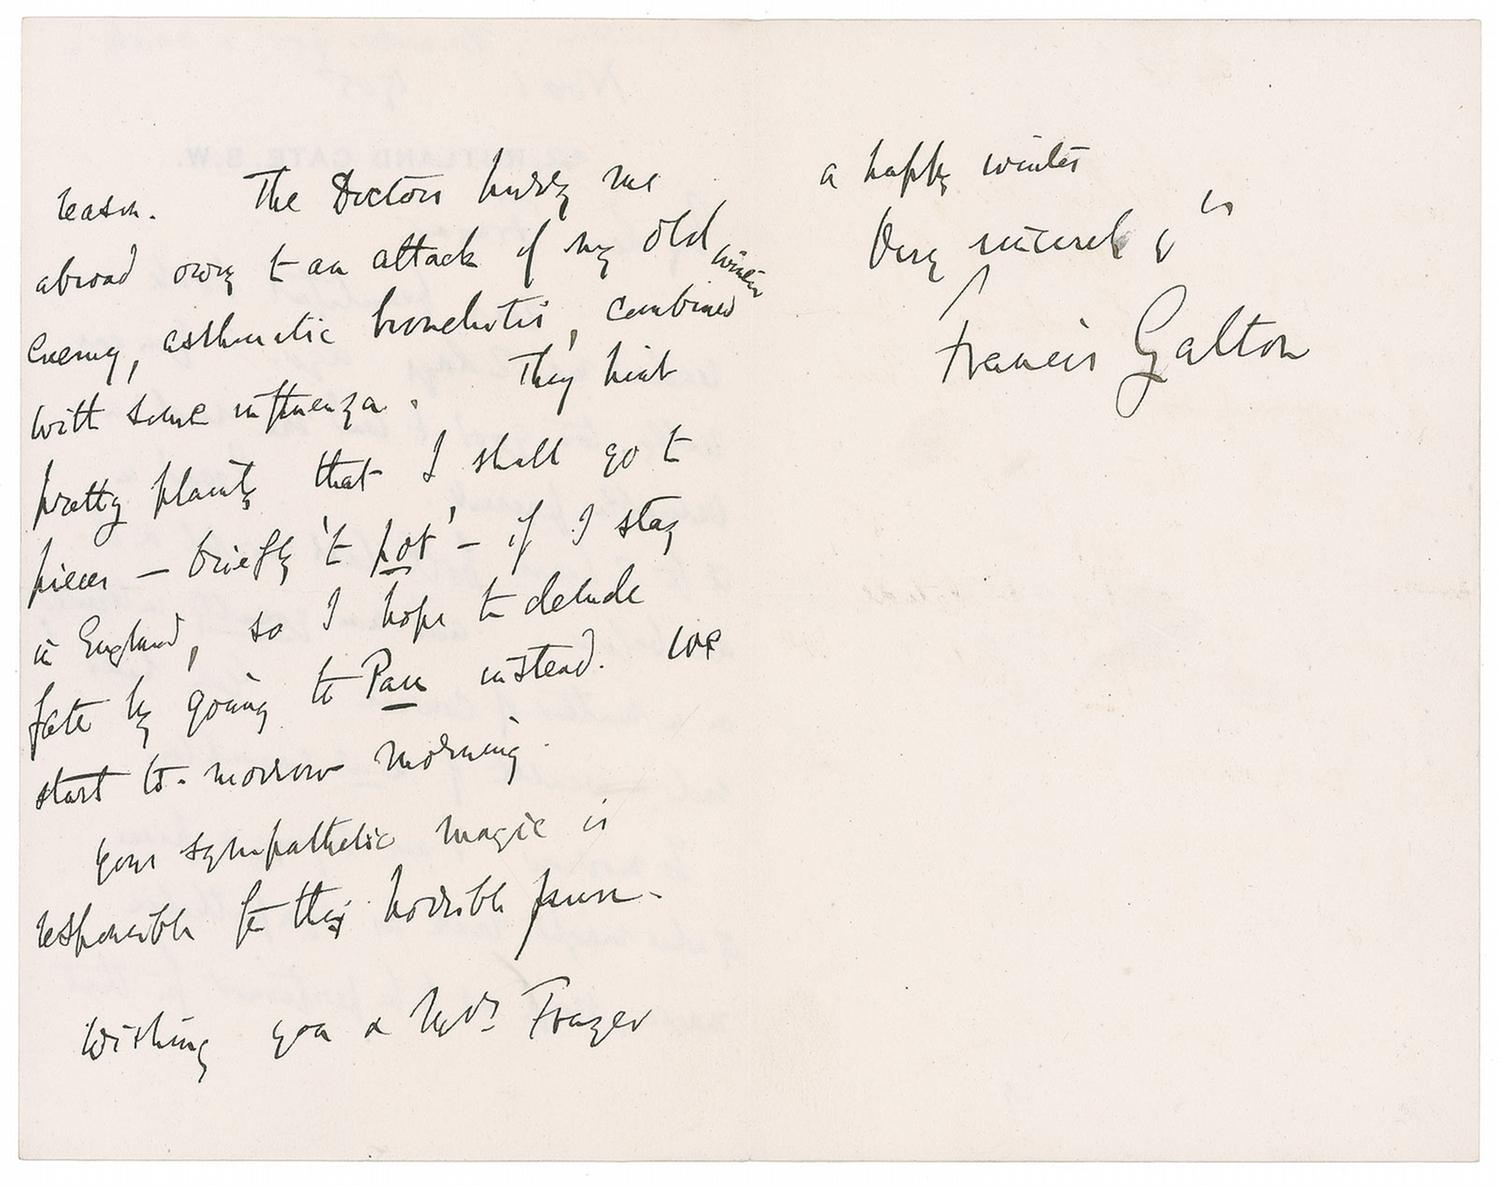 reason. The Doctors hurry me
abroad owing to an attack of my old winter
enemy, asthmatic bronchitis, combined
with some influenza. They hint
pretty plainly that I shall go to
pieces — briefly 'to pot' — if I stay
in England, so I hope to delude
fate by going to Pau instead. We
start to-morrow morning.
Your sympathetic magic is
responsible for this horrible pun.
Wishing you & Mrs. Frazer
a happy winter
Very sincerely yrs
Francis Galton